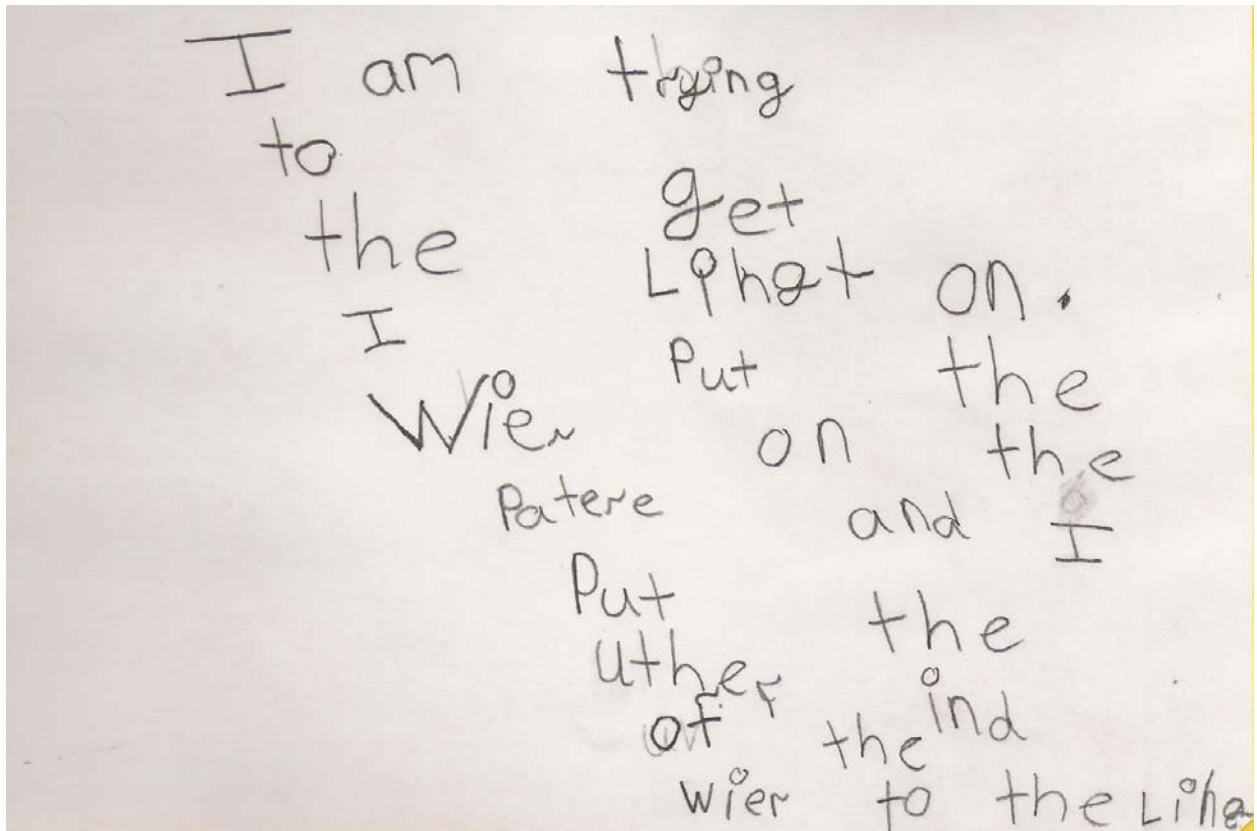 I am trying
to get
the Lihgt on.
I Put the
Wier on the
Patere and I
Put the
uther ind
of the
wier to the Lihg